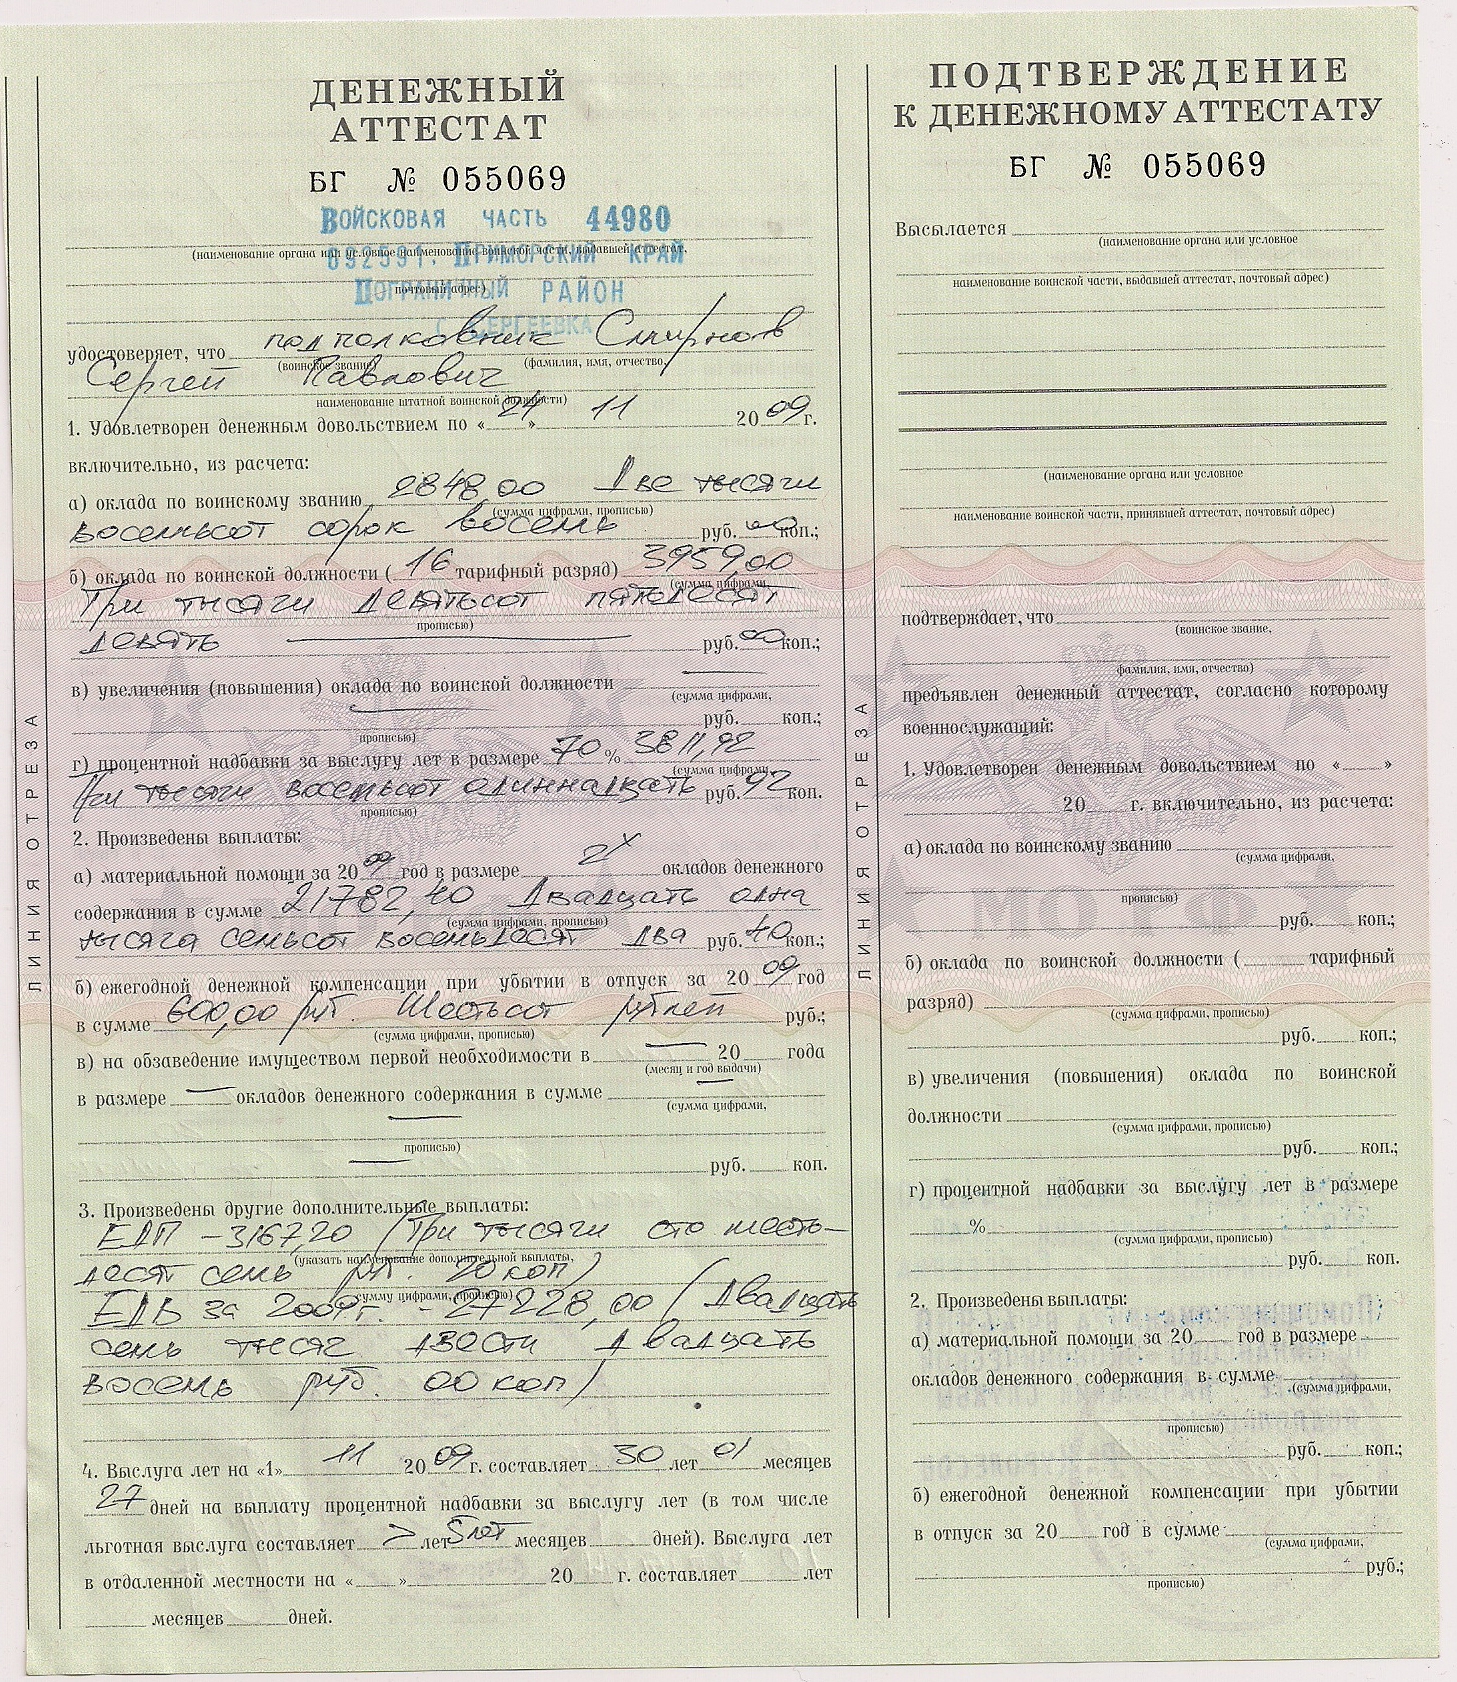 ДЕНЕЖНЫЙ
АТТЕСТАТ
БГ № 055069
ВОЙСКОВАЯ ЧАСТЬ 44980
(наименование органа или условное наименование воинской части, выдавшей аттестат,
692591, ПРИМОРСКИЙ КРАЙ
почтовый адрес)
ПОГРАНИЧНЫЙ РАЙОН
с. СЕРГЕЕВКА
удостоверяет, что подполковник Смирнов
(воинское звание) (фамилия, имя, отчество,
Сергей Павлович
наименование штатной воинской должности)
1. Удовлетворен денежным довольствием по «24» 11 2009г.
включительно, из расчета:
а) оклада по воинскому званию 2848,00 Две тысячи
(сумма цифрами, прописью)
восемьсот сорок восемь руб. 00 коп.;
б) оклада по воинской должности (16 тарифный разряд) 3959,00
(сумма цифрами,
Три тысячи девятьсот пятьдесят
прописью)
девять руб. 00 коп.;
в) увеличения (повышения) оклада по воинской должности
(сумма цифрами,
руб. коп.;
прописью)
г) процентной надбавки за выслугу лет в размере 70% 3811,92
(сумма цифрами,
Три тысячи восемьсот одиннадцать руб. 92 коп.
прописью)
2. Произведены выплаты:
а) материальной помощи за 2009 год в размере 2х окладов денежного
содержания в сумме 21782,40 Двадцать одна
(сумма цифрами, прописью)
тысяча семьсот восемьдесят два руб. 40 коп.;
б) ежегодной денежной компенсации при убытии в отпуск за 2009 год
в сумме 600,00 руб. Шестьсот рублей руб.;
(сумма цифрами, прописью)
в) на обзаведение имуществом первой необходимости в — 20 года
(месяц и год выдачи)
в размере — окладов денежного содержания в сумме —
(сумма цифрами,
прописью)
руб. коп.
3. Произведены другие дополнительные выплаты:
ЕДП - 3167,20 (Три тысячи сто шесть-
(указать наименование дополнительной выплаты,
десят семь руб. 20 коп)
сумму цифрами, прописью)
ЕДВ за 2009г. - 27228,00 (Двадцать
семь тысяч двести двадцать
восемь руб. 00 коп)
4. Выслуга лет на «1» 11 2009 г. составляет 30 лет 01 месяцев
27 дней на выплату процентной надбавки за выслугу лет (в том числе
льготная выслуга составляет > лет 5 лет месяцев дней). Выслуга лет
в отдаленной местности на « » 20 г. составляет лет
месяцев дней.
ЛИНИЯ ОТРЕЗА
ЛИНИЯ ОТРЕЗА
ПОДТВЕРЖДЕНИЕ
К ДЕНЕЖНОМУ АТТЕСТАТУ
БГ № 055069
Высылается
(наименование органа или условное
наименование воинской части, выдавшей аттестат, почтовый адрес)
(наименование органа или условное
наименование воинской части, принявшей аттестат, почтовый адрес)
подтверждает, что
(воинское звание,
фамилия, имя, отчество)
предъявлен денежный аттестат, согласно которому
военнослужащий:
1. Удовлетворен денежным довольствием по « »
20 г. включительно, из расчета:
а) оклада по воинскому званию
(сумма цифрами,
прописью)
руб. коп.;
б) оклада по воинской должности ( тарифный
разряд)
(сумма цифрами, прописью)
руб. коп.;
в) увеличения (повышения) оклада по воинской
должности
(сумма цифрами, прописью)
руб. коп.;
г) процентной надбавки за выслугу лет в размере
%
(сумма цифрами, прописью)
руб. коп.
2. Произведены выплаты:
а) материальной помощи за 20 год в размере
окладов денежного содержания в сумме
(сумма цифрами,
прописью)
руб. коп.;
б) ежегодной денежной компенсации при убытии
в отпуск за 20 год в сумме
(сумма цифрами,
руб.;
прописью)